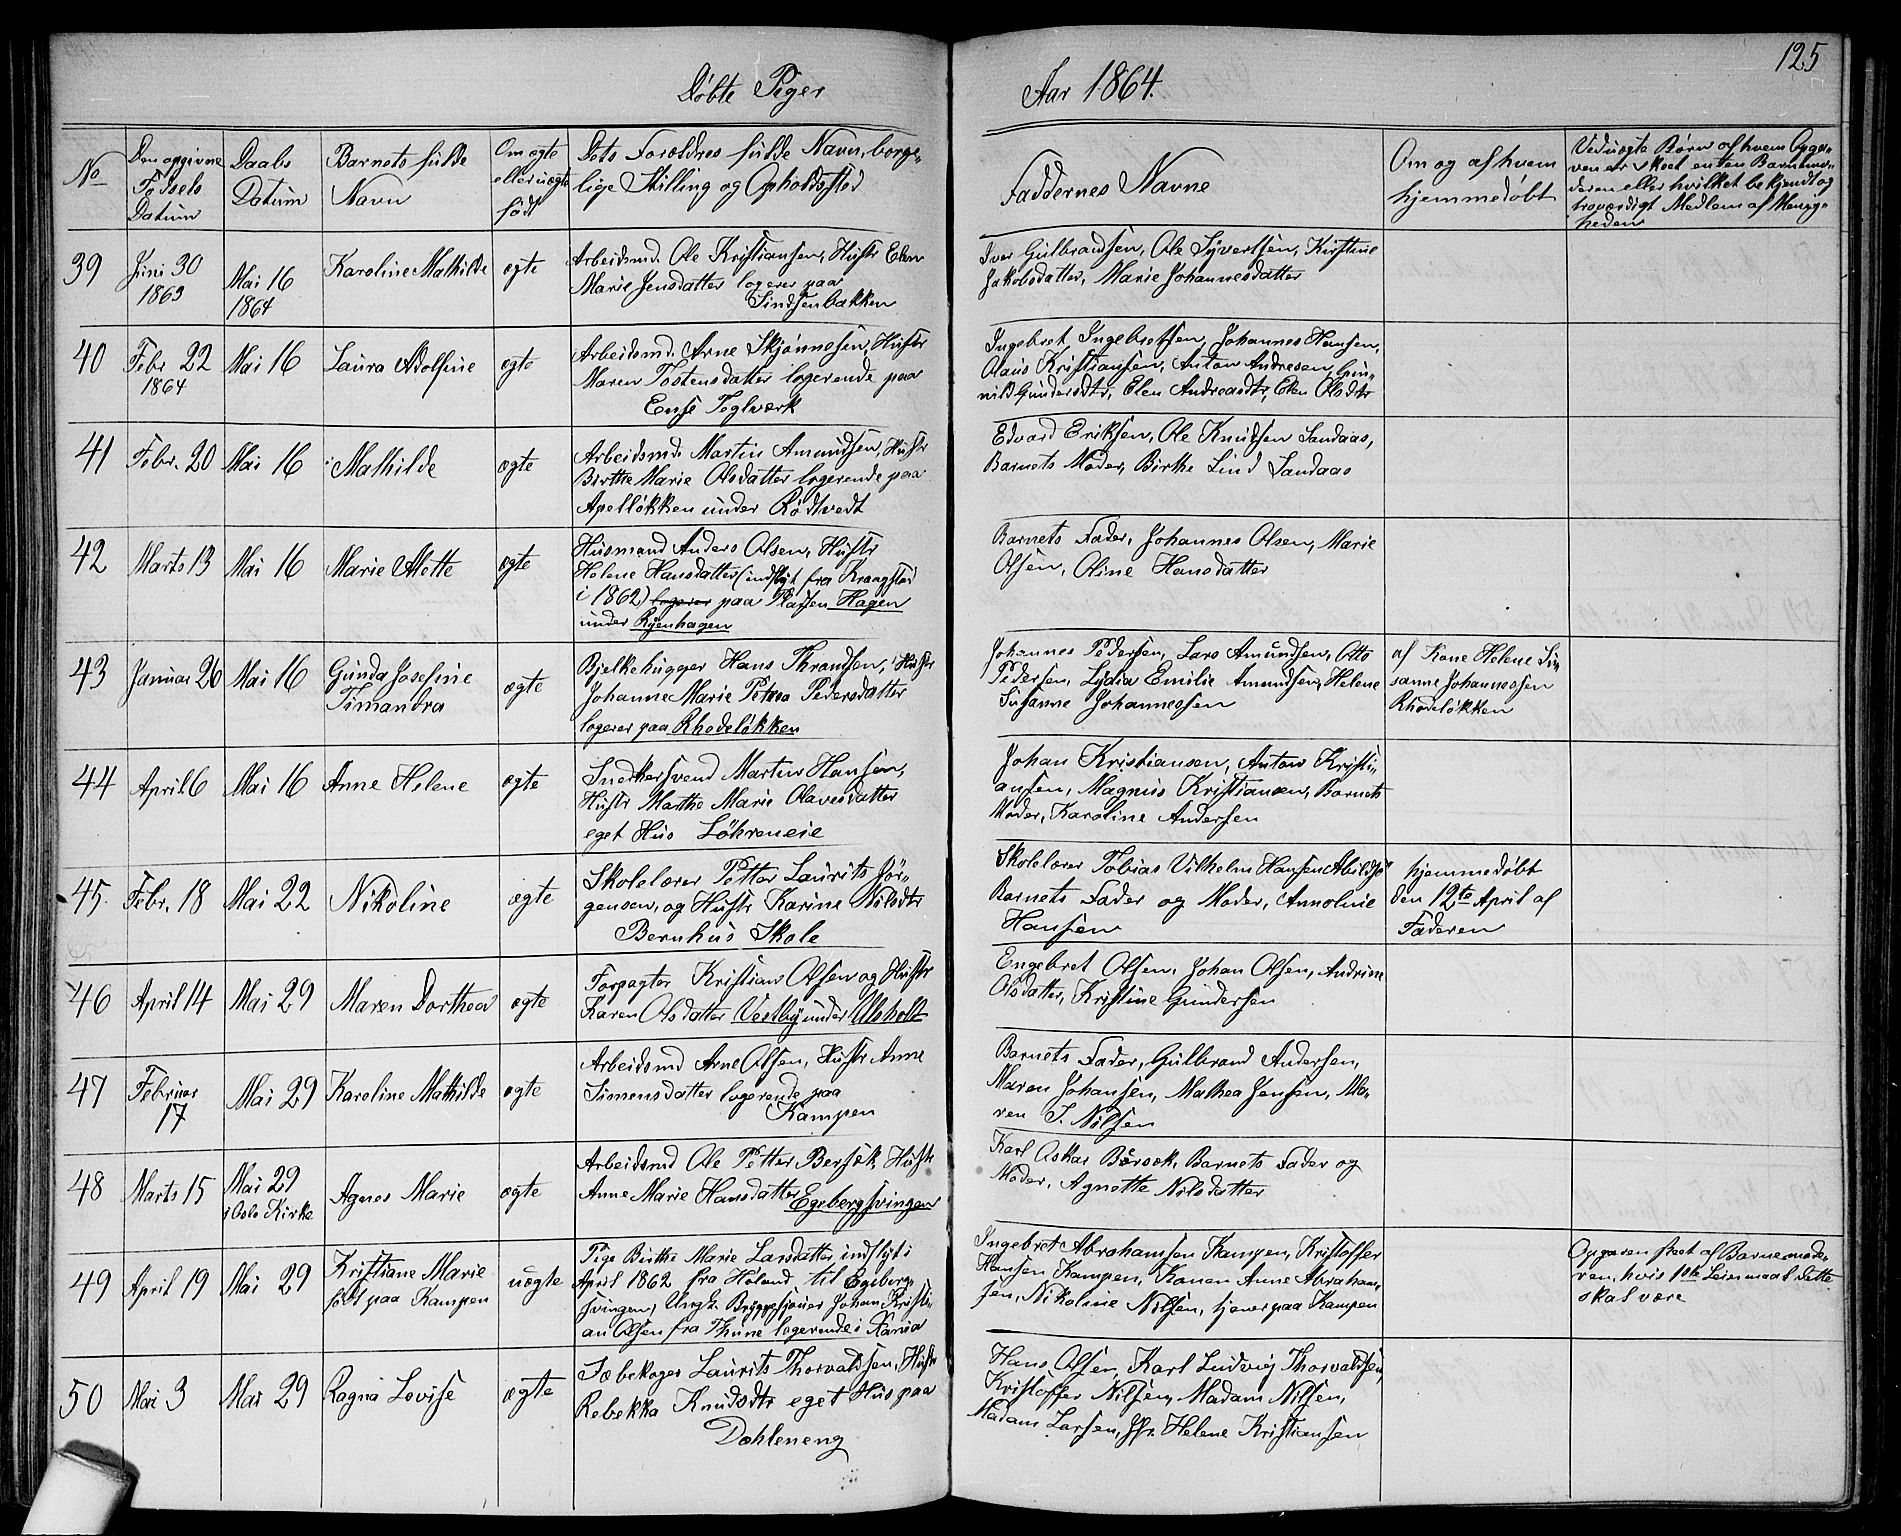 Døbte Piger
Aar 1864.
125
No
Den opgivne
Fødsels
Datum
Daabs
Datum
Barnets fulde
Navn
Om ægte
eller uægte
født
Dets Forældres fulde Navn, borge-
lige Stilling og Opholdssted
Faddernes Navne
Om og af hvem
hjemmedøbt
Ved uægte Børn af hvem Opga-
ven er skeet enten Barnemo-
deren eller hvilket bekjendt og
troværdigt Medlem af Menig-
heden
39
Juni 30
1863
Mai 16
1864
Karoline Mathilde
ægte
Arbeidsmd. Ole Kristiansen, Hustr Elen
Marie Jensdatter logerer paa
Sindsenbakken
Iver Gulbrandsen, Ole Syvertsen, Kirstine
Jakobsdatter, Marie Johannesdatter
40
Febr 22
1864
Mai 16
Laura Adolfine
ægte
Arbeidsmd. Arne Skjønnesen, Hustr
Maren Tostensdatter logerende paa
Ense Teglværk
Ingebret Ingebretsen, Johannes Hansen,
Olaus Kristiansen, Anton Andresen, Gun-
nild Gundersdtr, Elen Andreasdtr, Elen Olsdtr
41
Febr. 20
Mai 16
Mathilde
ægte
Arbeidsmd. Martin Amundsen, Hustr
Birthe Marie Olsdatter logerende paa
Apelløkken under Rødtvedt
Edvard Eriksen, Ole Knudsen Sandaas,
Barnets Moder, Birthe Lind Sandaas
42
Marts 13
Mai 16
Marie Mette
ægte
Husmand Anders Olsen, Hustr
Helene Hansdatter (indflyt fra Kraagstad
i 1862) logerer paa Pladsen Hagen
under Ryenhagen
Barnets Fader, Johannes Olsen, Marie
Olsen, Oline Hansdatter
43
Januar 26
Mai 16
Gunda Josefine
Timandra
ægte
Bjelkehugger Hans Thrandsen, Hustr
Johanne Marie Petrea Pedersdatter
logerer paa Rhodeløkken
Johannes Pedersen, Lars Amundsen, Otto
Pedersen, Lydia Emilie Amundsen, Helene
Susanne Johannessen
af Kone Helene Su-
sanne Johannessen
Rhodeløkken
44
April 6
Mai 16
Anne Helene
ægte
Snedkersvend Martin Hansen,
Hustr Marthe Marie Olavesdatter
eget Hus Løhreneie
Johan Kristiansen, Anton Kristi-
ansen, Magnus Kristiansen, Barnets
Moder, Karoline Andersen
45.
Febr. 18
Mai 22
Nikoline
ægte
Skolelærer Petter Laurits Jør-
gensen, og Hustr Karine Nilsdtr
Bernhus Skole
Skolelærer Tobias Vilhelm Hansen Abildsø
Barnets Fader og Moder, Annoline
Hansen
hjemmedøbt
den 12te April af
Faderen
46
April 14
Mai 29
Maren Dorthea
ægte
Forpagter Kristian Olsen og Hustr
Karen Olsdatter Vestby under Ulsholt
Engebret Olsen, Johan Olsen, Andrine
Olsdatter, Kristine Gundersen
47
Februar
17
Mai 29
Karoline Mathilde
ægte
Arbeidsmd Arne Olsen, Hustr Anne
Simensdatter logerende paa
Kampen
Barnets Fader, Gulbrand Andersen,
Maren Johansen, Mathea Jensen, Ma-
ren S. Nilsen
48
Marts 15
Mai 29
i Oslo Kirke
Agnes Marie
ægte
Arbeidsmd Ole Petter Børsæk, Hustr
Anne Marie Hansdatter Egebergsvingen
Karl Oskar Børsæk, Barnets Fader og
Moder, Agnette Nilsdatter
49
April 19
Mai 29
Kristiane Marie
født paa Kampen
uægte
Pige Birthe Marie Larsdatter indflyt i
April 1862 fra Høland til Egeberg-
svingen, Ungk. Bryggesjouer Johan Kristi-
an Olsen fra Thune logerende i Xania
Ingebret Abrahamsen Kampen, Kristoffer
Hansen Kampen, Konen Anne Abraham-
sen, Nikoline Nilsen, tjener paa Kampen
Opgaven skeet af Barnemode-
ren, hvis 1ste Leiermaal dette
skal være
50
Mai 3
Mai 29
Ragna Lovise
ægte
Sæbekoger Laurits Thorvaldsen, Hustr
Rebekka Knudsdtr eget Hus paa
Dahleneng
Hans Olsen, Karl Ludvig Thorvaldsen,
Kristoffer Nilsen, Madam Nilsen,
Madam Larsen, Jfr. Helene Kristiansen